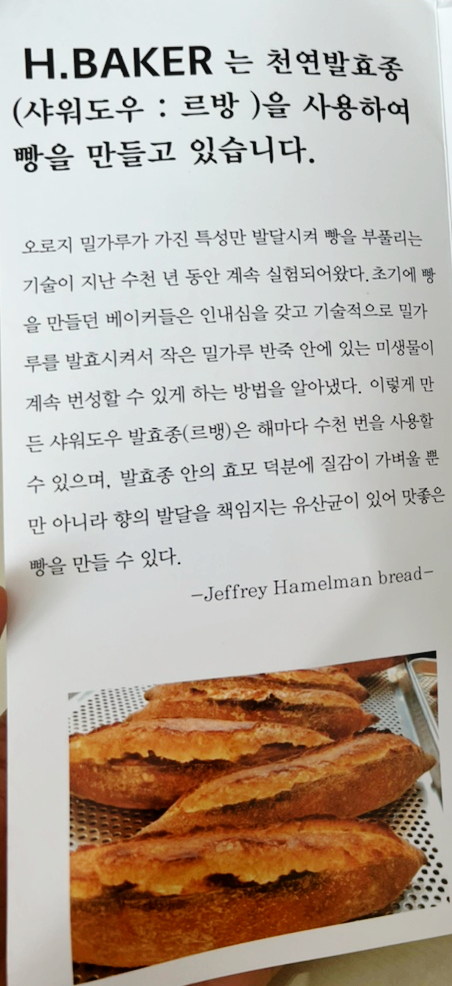 H.BAKER 는 천연발효종
(샤워도우 : 르방 )을 사용하여
빵을 만들고 있습니다.
오로지 밀가루가 가진 특성만 발달시켜 빵을 부풀리는
기술이 지난 수천 년 동안 계속 실험되어왔다. 초기에 빵
을 만들던 베이커들은 인내심을 갖고 기술적으로 밀가
루를 발효시켜서 작은 밀가루 반죽 안에 있는 미생물이
계속 번성할 수 있게 하는 방법을 알아냈다. 이렇게 만
든 샤워도우 발효종(르뱅)은 해마다 수천 번을 사용할
수 있으며, 발효종 안의 효모 덕분에 질감이 가벼울 뿐
만 아니라 향의 발달을 책임지는 유산균이 있어 맛좋은
빵을 만들 수 있다.
-Jeffrey Hamelman bread-